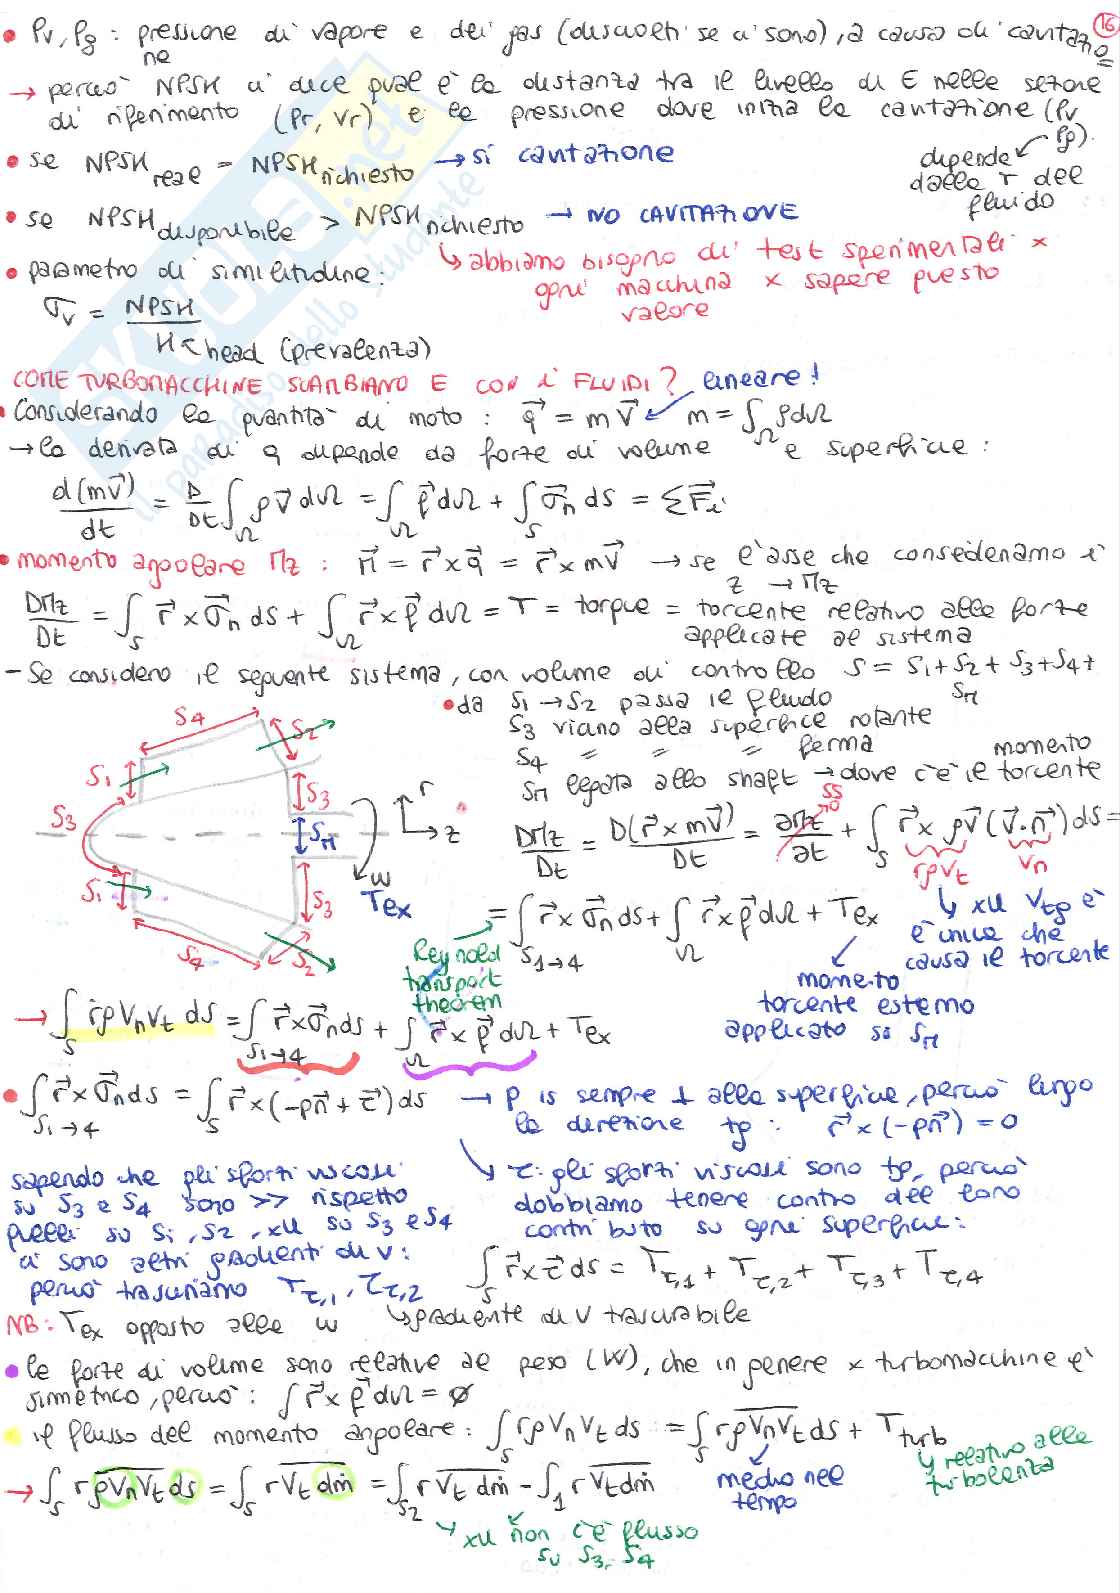 16
• Pv, Pg : pressione di vapore e dei gas (disciolti se ci sono), a causa di cavitazio
ne
→ perciò NPSH ci dice qual è la distanza tra il livello di E nella sezione
di riferimento (Pr, Vr) e la pressione dove inizia la cavitazione (Pv
Pg).
dipende
dalla T del
fluido
• se NPSH reale = NPSH richiesto → si cavitazione
• se NPSH disponibile > NPSH richiesto → NO CAVITAZIONE
↳ abbiamo bisogno di test sperimentali x
ogni macchina x sapere questo
valore
• parametro di similitudine:
σv = NPSH / H ↖ head (prevalenza)
COME TURBOMACCHINE SCAMBIANO E CON I FLUIDI? lineare!
• Considerando la quantità di moto : q⃗ = m V⃗ m = ∫Ω ρdΩ
→ la derivata di q dipende da forze di volume e superficie :
d(mV⃗)/dt = D/Dt ∫Ω ρV⃗ dΩ = ∫Ω f⃗ dΩ + ∫S σ⃗n dS = ΣF⃗i
• momento angolare Mz : M⃗ = r⃗ x q⃗ = r⃗ x mV⃗ → se l'asse che consideriamo è
z → Mz
DMz/Dt = ∫S r⃗ x σ⃗n dS + ∫Ω r⃗ x f⃗ dΩ = T = torque = torcente relativo alle forze
applicate al sistema
- Se considero il seguente sistema, con volume di controllo S = S1 + S2 + S3 + S4 +
SM
• da S1 → S2 passa il fluido
S3 vicino alla superficie rotante
S4 " " " ferma
SM legata allo shaft → dove c'è il torcente
momento
S4
S2
S1
S3
S3
SM
r
z
ω
Tex
S1
S3
S4
S2
DMz/Dt = D(r⃗ x mV⃗)/Dt = ∂Mz/∂t + ∫S r⃗ x ρV⃗ (V⃗·n⃗) dS =
SS
0
rρVt
Vn
= ∫S1→4 r⃗ x σ⃗n dS + ∫Ω r⃗ x f⃗ dΩ + Tex
↳ xché Vtg è
l'unica che
causa il torcente
Reynold
transport
theorem
momento
torcente esterno
applicato su SM
→ ∫S rρVnVt dS = ∫S1→4 r⃗ x σ⃗n dS + ∫Ω r⃗ x f⃗ dΩ + Tex
• ∫S1→4 r⃗ x σ⃗n dS = ∫S r⃗ x (-pn⃗ + τ⃗) dS → P is sempre ⊥ alla superficie, perciò lungo
la direzione tg : r⃗ x (-pn⃗) = 0
↳ τ: gli sforzi viscosi sono tg, perciò
dobbiamo tenere contro del loro
contributo su ogni superficie:
sapendo che gli sforzi viscosi
su S3 e S4 sono >> rispetto
quelli su S1, S2, xché su S3 e S4
ci sono altri gradienti di V:
perciò trascuriamo Tτ,1, Tτ,2
↳ gradiente di V trascurabile
∫S r⃗ x τ⃗ dS = Tτ,1 + Tτ,2 + Tτ,3 + Tτ,4
NB: Tex opposto alla ω
• le forze di volume sono relative al peso (W), che in genere x turbomacchine è
simmetrico, perciò : ∫ r⃗ x f⃗ dΩ = ∅
• il flusso del momento angolare : ∫S rρVnVt dS = ∫S rρVnVt dS + Tturb
medio nel
tempo
↳ relativo alla
turbolenza
→ ∫S rρVnVt dS = ∫S rVt dṁ = ∫S2 rVt dṁ - ∫1 rVt dṁ
↳ xché non c'è flusso
su S3, S4